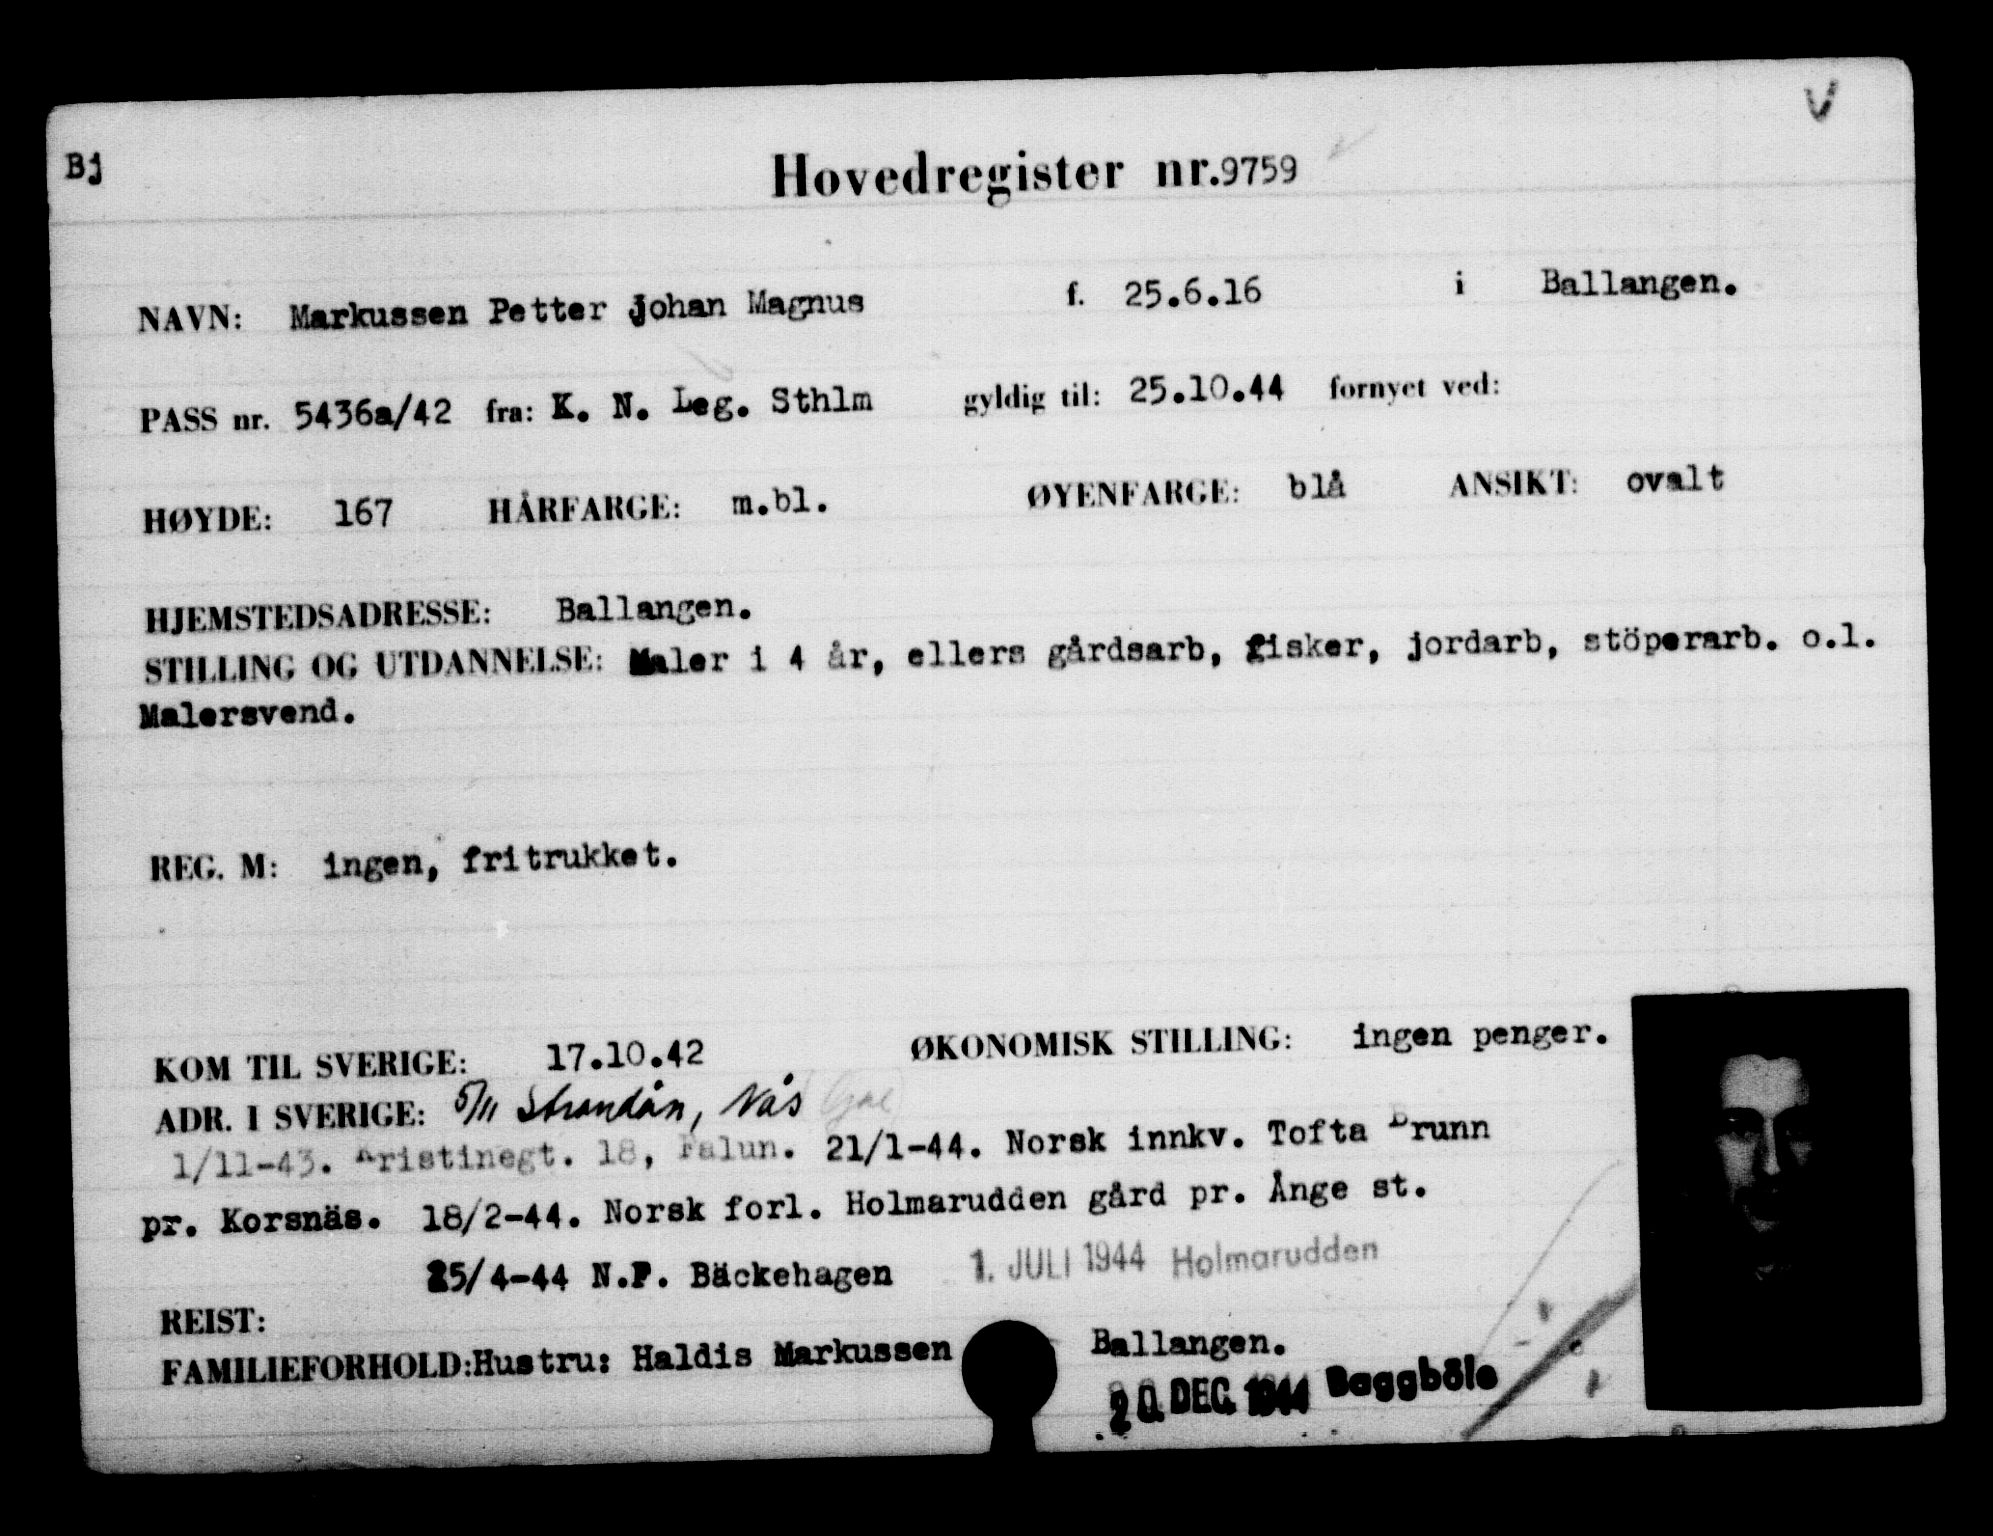 V
Bj Hovedregister nr. 9759
NAVN: Markussen Petter Johan Magnus f. 25.6.16 i Ballangen.
PASS nr. 5436a/42 fra: K. N. Leg. Sthlm gyldig til: 25.10.44 fornyet ved:
HØYDE: 167 HÅRFARGE: m.bl. ØYENFARGE: blå ANSIKT: ovalt
HJEMSTEDSADRESSE: Ballangen.
STILLING OG UTDANNELSE: Maler i 4 år, ellers gårdsarb, fisker, jordarb, stöperarb. o.l.
Malersvend.
REG. M: ingen, fritrukket.
KOM TIL SVERIGE: 17.10.42 ØKONOMISK STILLING: ingen penger.
ADR. I SVERIGE: 5/11 Strandån, Nås
1/11-43. Kristinegt. 18, Falun. 21/1-44. Norsk innkv. Tofta Brunn
pr. Korsnäs. 18/2-44. Norsk forl. Holmarudden gård pr. Ånge st.
25/4-44 N.F. Bäckehagen 1. JULI 1944 Holmarudden
REIST:
FAMILIEFORHOLD: Hustru: Haldis Markussen Ballangen.
20. DEC. 1944 Baggböle